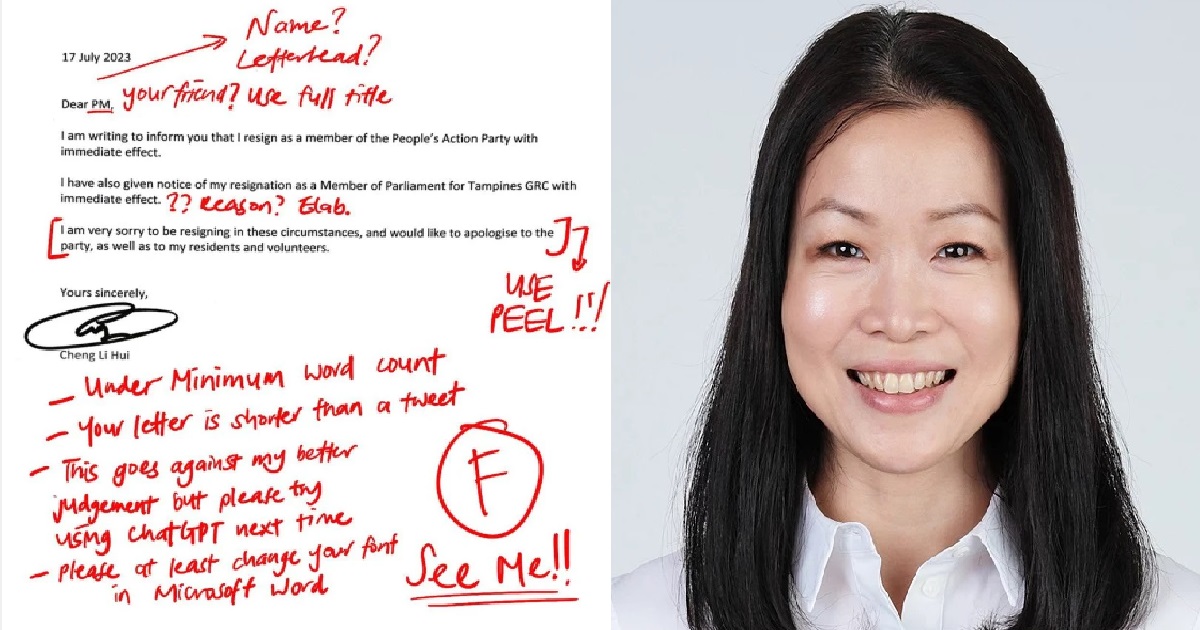 Name?
Letterhead?
17 July 2023
Dear PM, your friend? Use full title
I am writing to inform you that I resign as a member of the People's Action Party with
immediate effect.
I have also given notice of my resignation as a Member of Parliament for Tampines GRC with
immediate effect. ?? Reason? Elab.
I am very sorry to be resigning in these circumstances, and would like to apologise to the
party, as well as to my residents and volunteers.
USE
PEEL!!!
Yours sincerely,
Cheng Li Hui
- Under Minimum word count
- Your letter is shorter than a tweet
- This goes against my better
judgement but please try
using ChatGPT next time
- Please at least change your font
in Microsoft Word
F
See Me!!